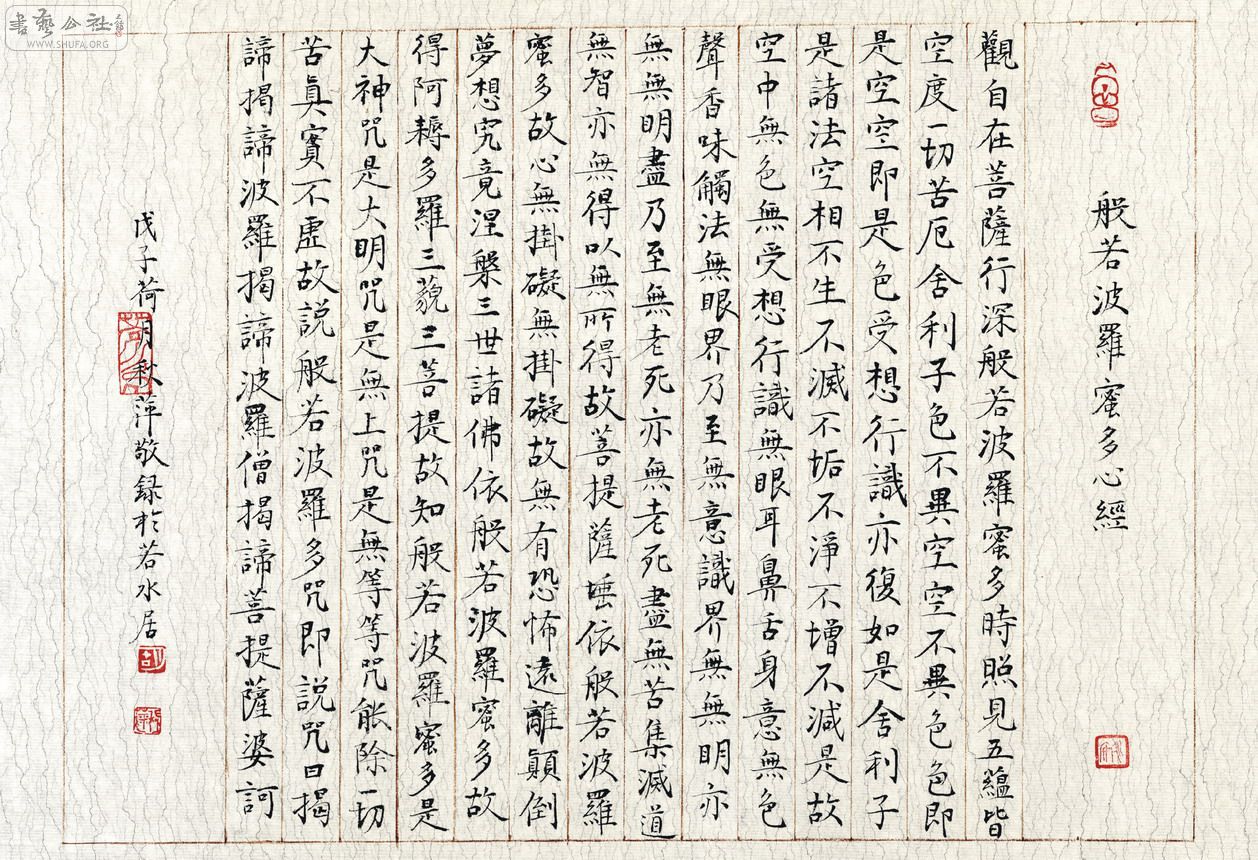 般若波羅蜜多心經
觀自在菩薩行深般若波羅蜜多時照見五蘊皆
空度一切苦厄舍利子色不異空空不異色色即
是空空即是色受想行識亦復如是舍利子
是諸法空相不生不滅不垢不淨不增不減是故
空中無色無受想行識無眼耳鼻舌身意無色
聲香味觸法無眼界乃至無意識界無無明亦
無無明盡乃至無老死亦無老死盡無苦集滅道
無智亦無得以無所得故菩提薩埵依般若波羅
蜜多故心無掛礙無掛礙故無有恐怖遠離顛倒
夢想究竟涅槃三世諸佛依般若波羅蜜多故
得阿耨多羅三藐三菩提故知般若波羅蜜多是
大神咒是大明咒是無上咒是無等等咒能除一切
苦真實不虛故説般若波羅多咒即説咒曰揭
諦揭諦波羅揭諦波羅僧揭諦菩提薩婆訶
戊子荷月秋萍敬録於若水居
書藝公社
WWW.SHUFA.ORG